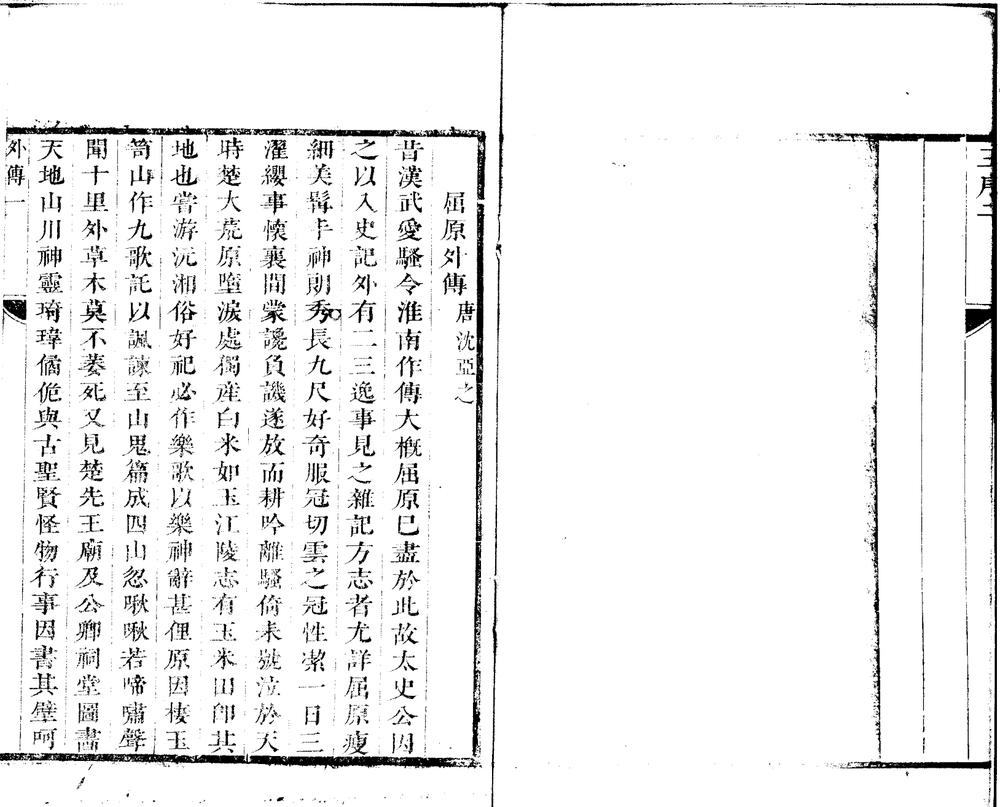 王序二
屈原外傳 唐沈亞之
昔漢武愛騷令淮南作傳大槪屈原已盡於此故太史公因
之以入史記外有二三逸事見之雜記方志者尤詳屈原瘦
細美髯丰神朗秀長九尺好奇服冠切雲之冠性潔一日三
濯纓事懷襄間蒙讒負譏遂放而耕吟離騷倚耒號泣於天
時楚大荒原墮淚處獨產白米如玉江陵志有玉米田卽其
地也嘗游沅湘俗好祀必作樂歌以樂神辭甚俚原因棲玉
笥山作九歌託以諷諫至山鬼篇成四山忽啾啾若啼嘯聲
聞十里外草木莫不萎死又見楚先王廟及公卿祠堂圖畫
天地山川神靈琦瑋僪佹與古聖賢怪物行事因書其壁呵
外傳一